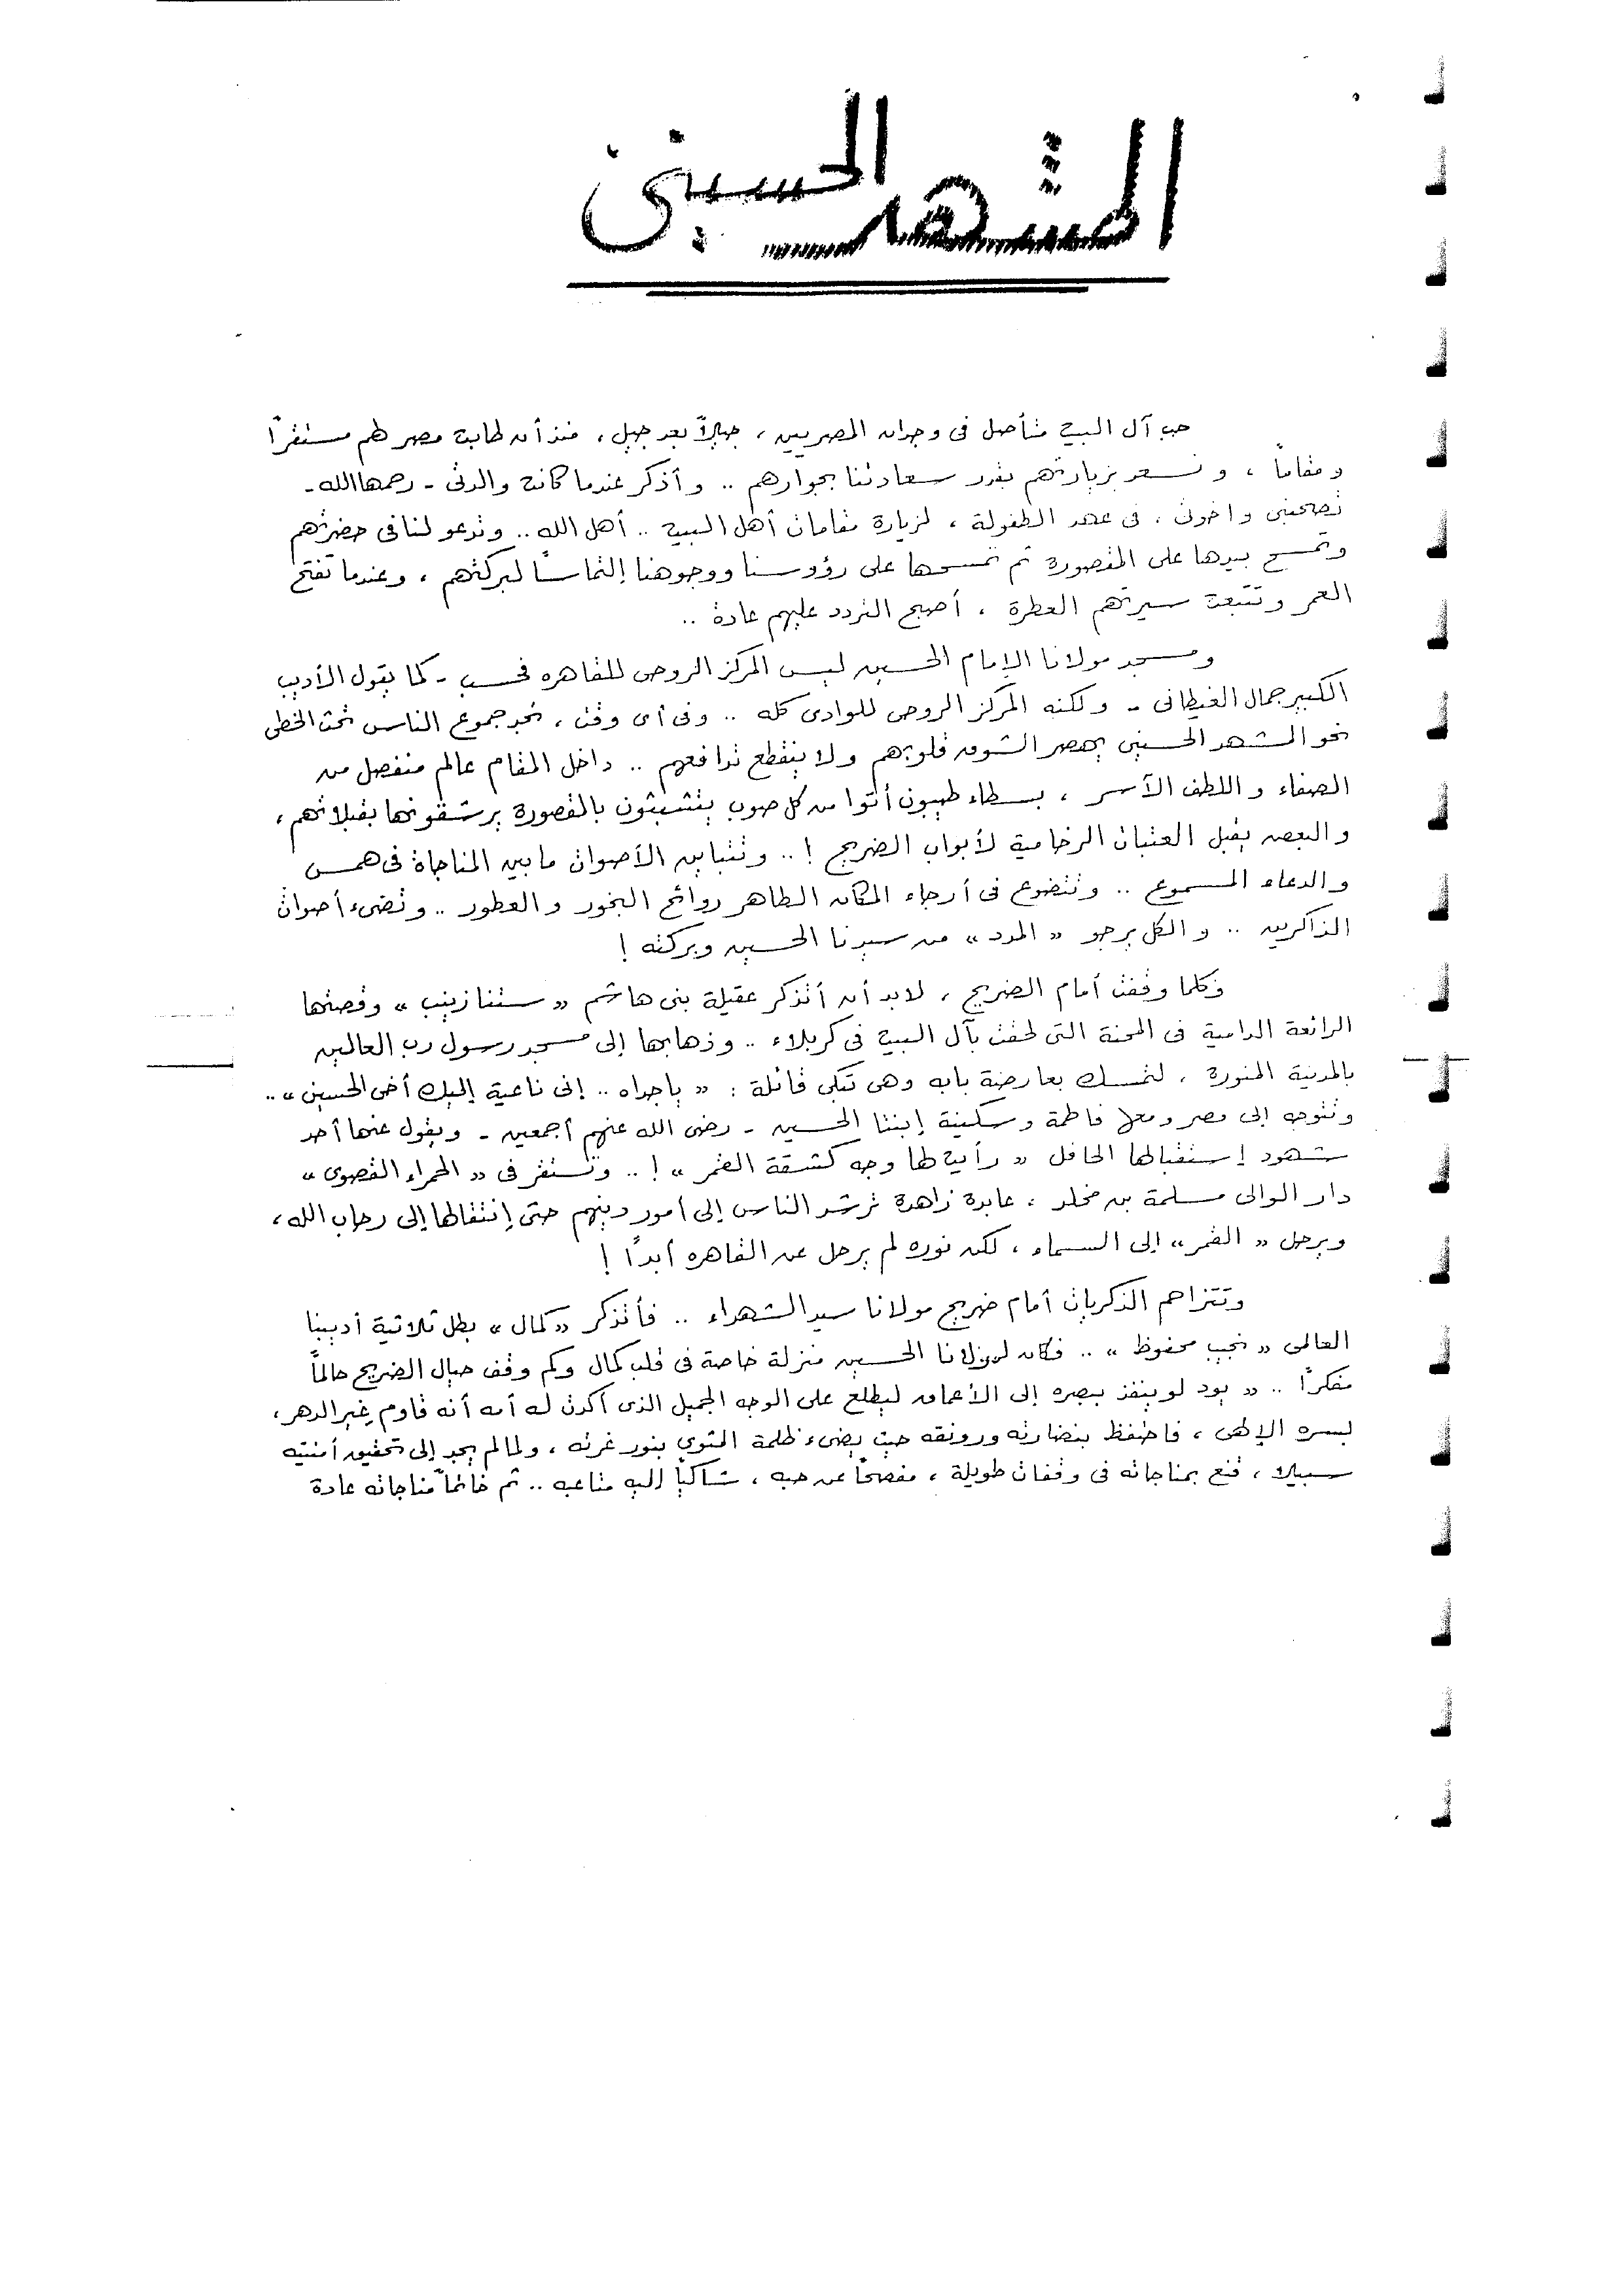 المشهد الحسينى
حب آل البيت متأصل فى وجدان المصريين ، جيلاً بعد جيل ، منذ أن طابت مصر لهم مستقراً
ومقاماً ، ونسعد بزيارتهم بقدر سعادتنا بجوارهم .. وأذكر عندما كانت والدتى - رحمها الله -
تصحبنى واخوتى ، فى عهد الطفولة ، لزيارة مقامات أهل البيت .. أهل الله .. وتدعو لنا فى حضرتهم
وتمسح بيدها على المقصورة ثم تمسحها على رؤوسنا ووجوهنا إلتماساً لبركتهم ، وعندما تفتح
العمر وتتبعت سيرتهم العطرة ، أصبح التردد عليهم عادة ..
ومسجد مولانا الإمام الحسين ليس المركز الروحى للقاهره فحسب - كما يقول الأديب
الكبير جمال الغيطانى - ولكنه المركز الروحى للوادى كله .. وفى أى وقت ، تجد جموع الناس تحث الخطى
نحو المشهد الحسينى يهصر الشوق قلوبهم ولا ينقطع تدافعهم .. داخل المقام عالم منفصل من
الصفاء واللطف الآسر ، بسطاء طيبون أتوا من كل صوب يتشبثون بالمقصورة يرشقونها بقبلاتهم ،
والبعض يقبل العتبات الرخامية لأبواب الضريح ! .. وتتباين الأصوات ما بين المناجاة فى همس
والدعاء المسموع .. وتتضوع فى أرجاء المكان الطاهر روائح البخور والعطور .. وتضىء أصوات
الذاكرين .. والكل يرجو « المدد » من سيدنا الحسين وبركته !
وكلما وقفت أمام الضريح ، لابد أن أتذكر عقيلة بنى هاشم « ستنا زينب » وقصتها
الرائعة الدامية فى المحنة التى لحقت بآل البيت فى كربلاء .. وذهابها إلى مسجد رسول رب العالمين
بالمدينة المنورة ، لتمسك بعارضة بابه وهى تبكى قائلة : « ياجداه .. إنى ناعية إليك أخى الحسين » ..
وتتوجه إلى مصر ومعها فاطمة وسكينة إبنتا الحسين - رضى الله عنهم أجمعين - ويقول عنها أحد
شهود إستقبالها الحافل « رأيت لها وجه كشقة القمر » ! .. وتستقر فى « الحمراء القصوى »
دار الوالى مسلمة بن مخلد ، عابدة زاهدة ترشد الناس إلى أمور دينهم حتى إنتقالها إلى رحاب الله ،
ويرحل « القمر » إلى السماء ، لكن نوره لم يرحل عن القاهره أبداً !
وتتزاحم الذكريات أمام ضريح مولانا سيد الشهداء .. فأتذكر « كمال » بطل ثلاثية أديبنا
العالمى « نجيب محفوظ » .. فكان لمولانا الحسين منزلة خاصة فى قلب كمال وكم وقف حيال الضريح حالماً
مفكراً .. « يود لو ينفذ ببصره إلى الأعماق ليطلع على الوجه الجميل الذى أكدت له أمه أنه قاوم غِيَر الدهر ،
لسره الإلهى ، فاحتفظ بنضارته ورونقه حيث يضىء ظلمة المثوى بنور غرته ، ولما لم يجد إلى تحقيق أمنيته
سبيلا ، قنع بمناجاته فى وقفات طويلة ، مفصحاً عن حبه ، شاكياً إليه متاعبه .. ثم خاتماً مناجاته عادة